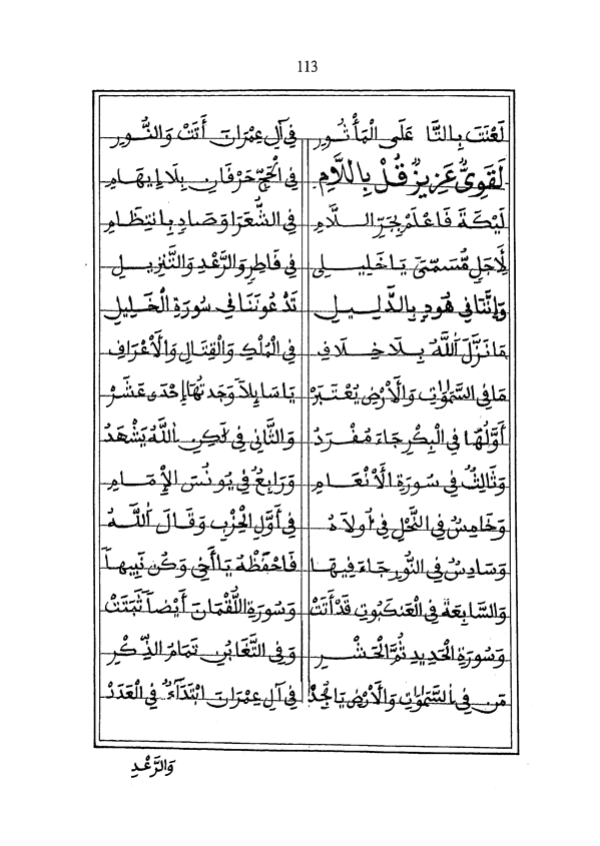 113
لَعْنَتَ بِالتَّا عَلَى الْمَأْثُورِ فِي آلِ عِمْرَانَ أَتَتْ وَالنُّورِ
لَقَوِيٌّ عَزِيزٌ قُلْ بِاللَّامِ فِي الْحَجِّ حَرْفَانِ بِلَا إِيهَامِ
لَيْكَةَ فَاعْلَمْ بِجَرِّ اللَّامِ فِي الشُّعَرَا وَصَادِ بِانْتِظَامِ
لِأَجَلٍ مُسَمًّى يَا خَلِيلِي فِي فَاطِرِ وَالرَّعْدِ وَالتَّنْزِيلِ
وَإِنَّنَا فِي هُودِ بِالدَّلِيلِ تَدْعُونَنَا فِي سُورَةِ الْخَلِيلِ
مَا نَزَّلَ اللَّهُ بِلَا خِلَافِ فِي الْمُلْكِ وَالْقِتَالِ وَالْأَعْرَافِ
مَا فِي السَّمَوَاتِ وَالْأَرْضِ يُعْتَبَرْ يَا سَايِلاً وَجَدتُّهَا إِحْدَى عَشَرْ
أَوَّلُهَا فِي الْبِكْرِ جَاءَ مُفْرَدُ وَالثَّانِي فِي لَكِنِ اللَّهُ يَشْهَدُ
وَثَالِثٌ فِي سُورَةِ الْأَنْعَامِ وَرَابِعٌ فِي يُونُسَ الْإِمَامِ
وَخَامِسٌ فِي النَّحْلِ فِي أُولَاهُ فِي أَوَّلِ الْحِزْبِ وَقَالَ اللَّهُ
وَسَادِسٌ فِي النُّورِ جَاءَ فِيهَا فَاحْفَظْهُ يَا أَخِي وَكُن نَبِيهاً
وَالسَّابِعَةُ فِي الْعَنكَبُوتِ قَدْ أَتَتْ وَسُورَةِ اللُّقْمَانَ أَيْضاً ثَبَتَتْ
وَسُورَةِ الْحَدِيدِ ثُمَّ الْحَشْرِ وَفِي التَّغَابُنِ تَمَامُ الذِّكْرِ
مَن فِي السَّمَوَاتِ وَالْأَرْضِ يَا مُجِدْ فِي آلِ عِمْرَانَ ابْتِدَاءٌ فِي الْعَدَدْ
وَالرَّعْدِ